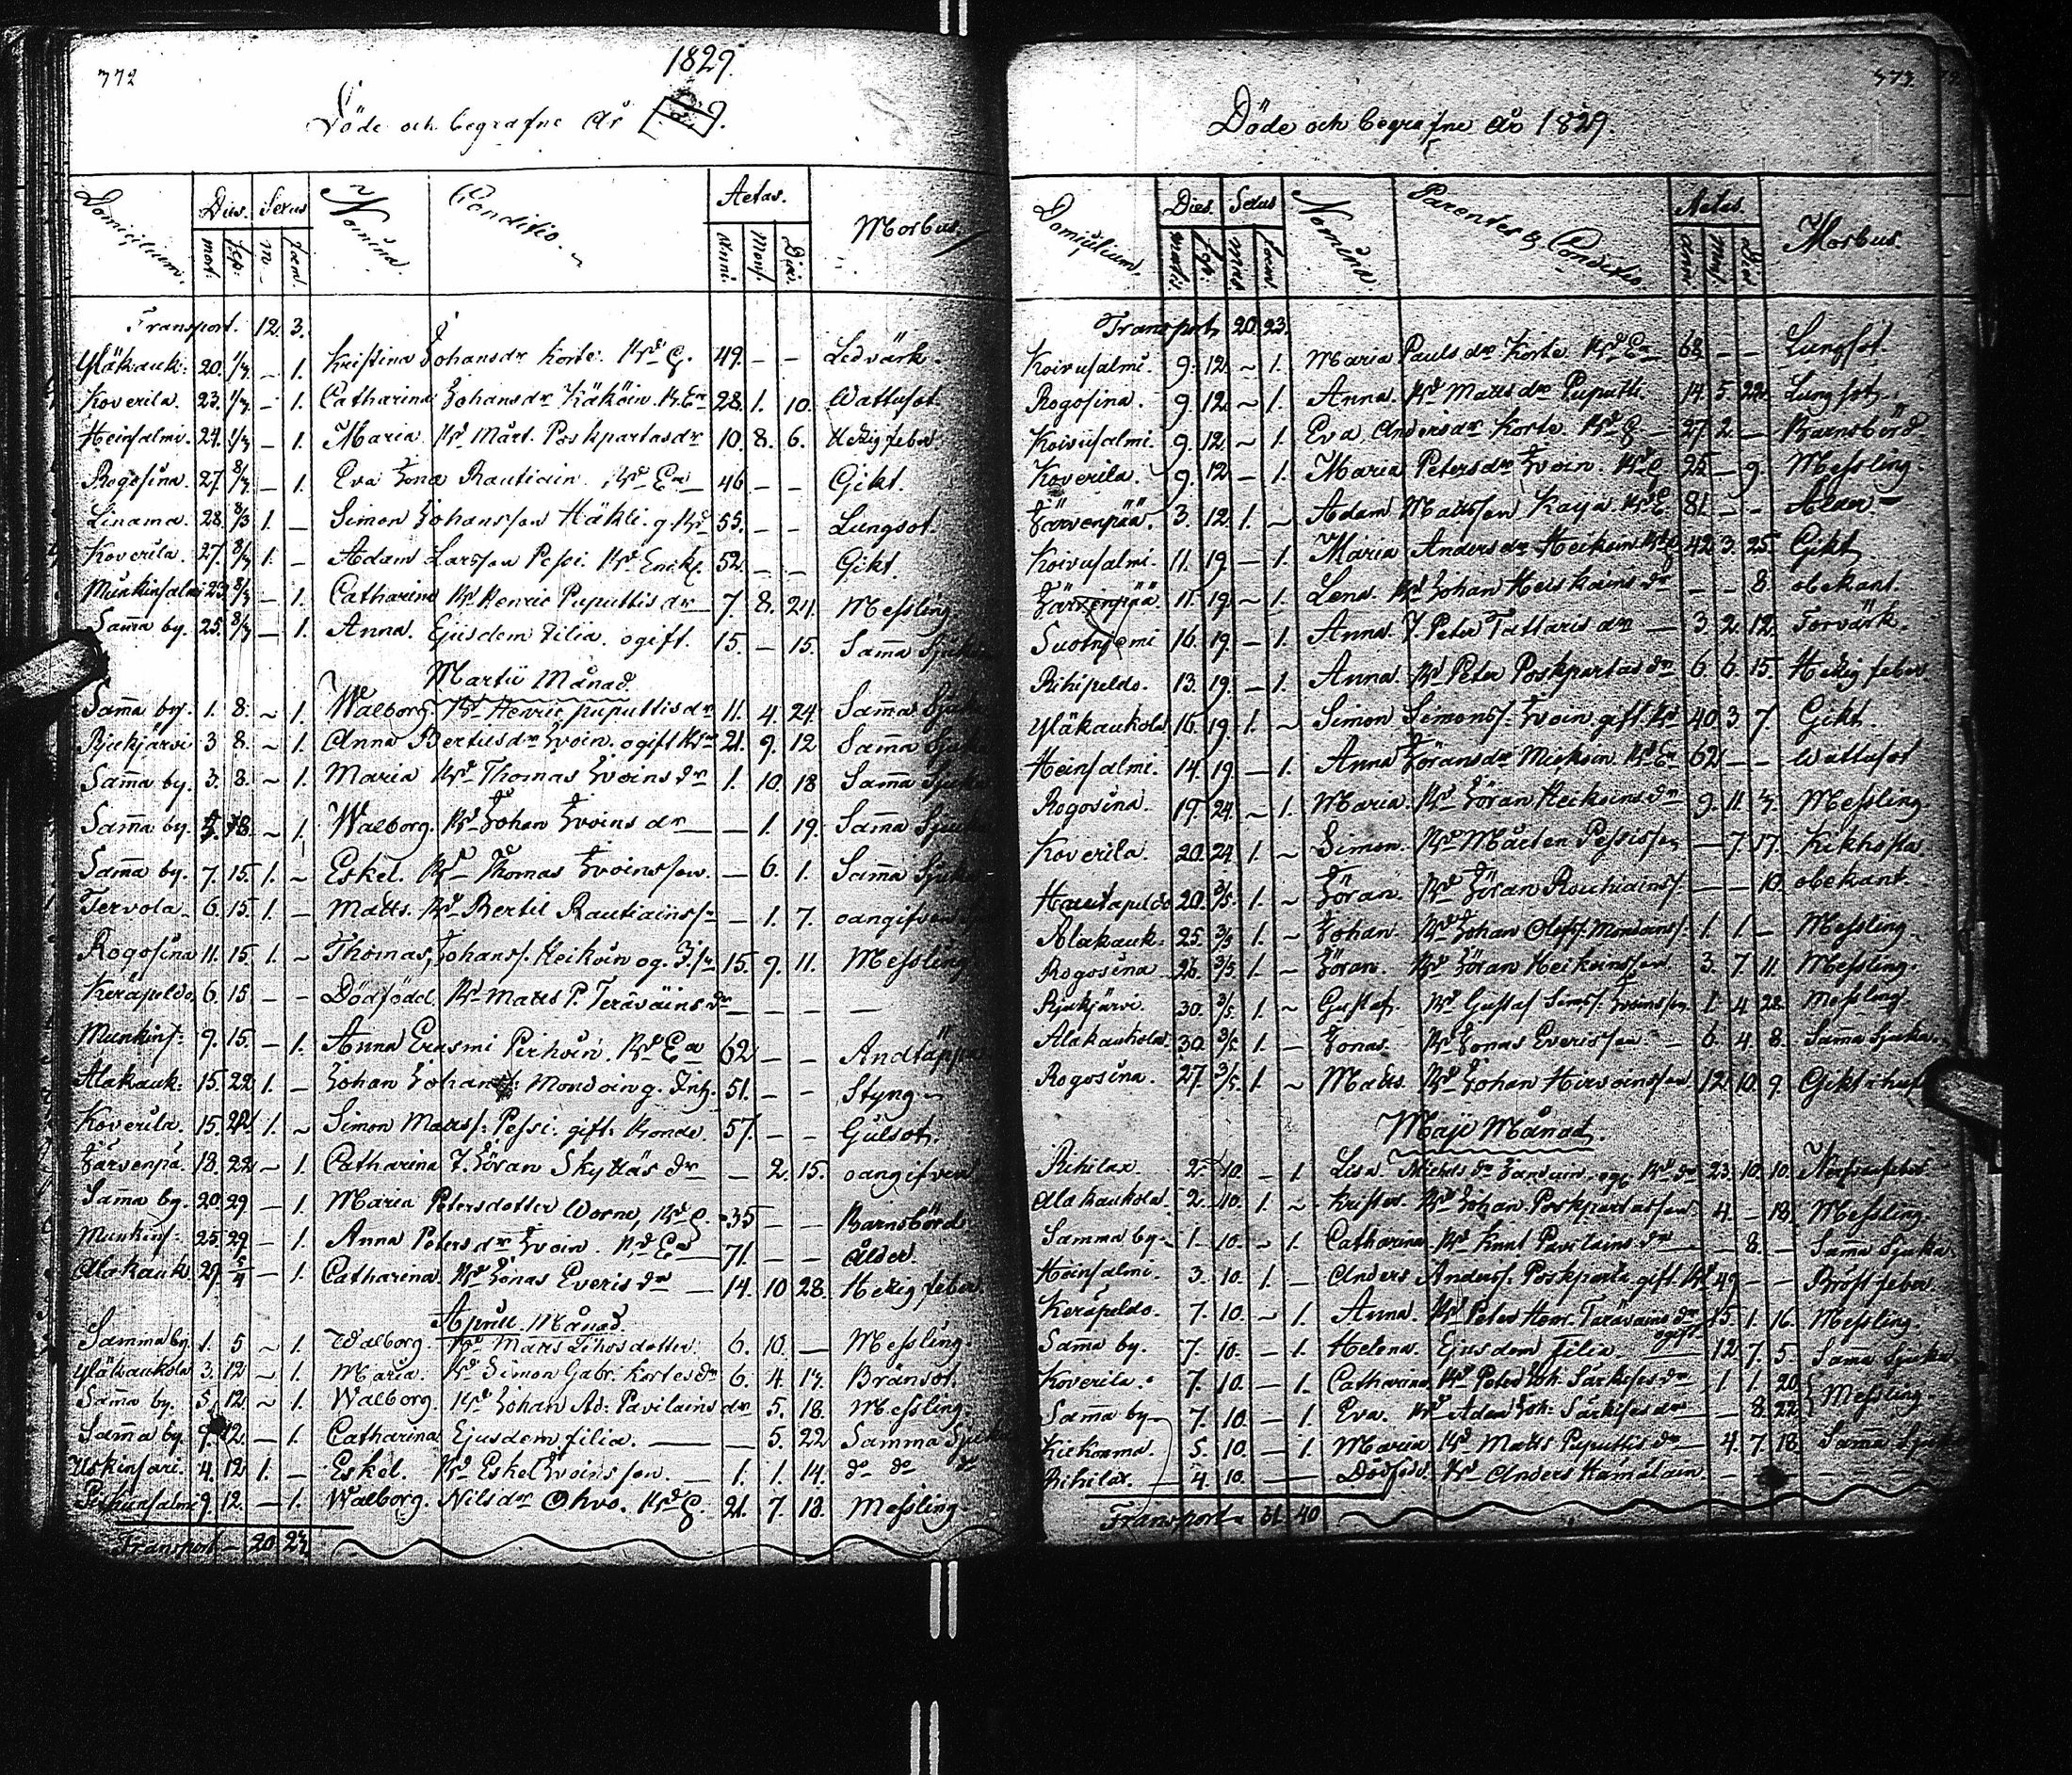 772
1829.
Döde och begrafne År
Domicilium. Dies. Sexus Nomina. Conditio. Aetas. Morbus.
mort. sep. m. foem. Anni. Mens. Dies.
Transport. 12. 3.
Yläkauk: 20. 1/3 – 1. Kristina Johansdr Korte. 49. – – Ledvärk.
Koverila. 23. 1/3 – 1. Catharina Johansdr Käköin. 28. 1. 10. Wattusot.
Heinsalmi. 24. 1/3 – 1. Maria Mårt. Poskpartasdr 10. 8. 6. Hetzig feber.
Rogosina. 27. 8/3 – 1. Eva Jona Rautiain 46 – – Gikt.
Linama. 28. 8/3 1. – Simon Johansson Häkli 55. – – Lungsot.
Koverila. 27. 8/3 1. – Adam Larsson Pessi. Enckl. 52. – – Gikt.
Munkinsalmi 23. 8/3 – 1. Catharina Henric Puputtis dr 7. 8. 24. Messling
Sama by. 25. 8/3 – 1. Anna. Ejusdem filia. ogift. 15. – 15. Sama Sjuka
Martii Månad.
Sama by. 1. 8. ~ 1. Walborg Henric puputtis dr 11. 4. 24. Sama
Rjekjärvi 3 8. ~ 1. Anna Bertilsdr Ivoin. ogift 21. 9. 12 Sama
Sama by. 3. 8. ~ 1. Maria Thomas Ivoins dr 1. 10. 18 Sama
Sama by. 8. – 1. Walborg. Johan Ivoins dr – 1. 19. Sama
Sama by. 7. 15. 1. ~ Eskel. Thomas Ivoinsson. – 6. 1. Sama Sjuka
Tervola 6. 15. 1. – Matts. Bertil Rautiains – 1. 7. oangifven
Rogosina 11. 15. 1. – Thomas, Johans/. Heikoin og. 15. 9. 11. Messling
Keräpeldo. 6. 15 – – Dödfödd. Matts P. Teräväins dr – – – –
Munkins/: 9. 15. – 1. Anna Erasmi Pirhoin. 62 – – Andtäppa
Alakauk. 15. 22 1. – Johan Johans/: Mondoin g. Inh. 51. – – Styng
Koverila. 15. 22. 1. ~ Simon Matts/: Pessi. gift. Bonde. 57. – – Gulsot.
Järvenpä. 18. 22 ~ 1. Catharina T. Jöran Skyttäs dr – 2. 15. oangifven
Sama by. 20. 29 – 1. Maria Petersdotter Worne, 35 – – Barnsbörd
Munkins/: 25. 29 – 1. Anna Peters dr Ivoin. 71. – – Ålder.
Alakauk 29. 5/4 – 1. Catharina. Jonas Everis dr 14. 10 28. Hetzig feber
Aprill. Månad.
Samma by. 1. 5 ~ 1. Walborg. Matts 6. 10. – Messling.
Yläkaukola 3. 12 ~ 1. Maria. Simon Gabr. Kortes dr 6. 4. 13. Bränsot.
Sama by. 5. 12 ~ 1. Walborg. Johan Ad: Pavilains dr 5. 18. Messling.
Sama by. 9. 12 – 1. Catharina Ejusdem filia. – 5. 22 Samma Sjuka
Uskinsari. 4. 12 1. – Eskel. Eskel Ivoinsson. 1. 1. 14. do do do
Pirhunsalmi 9. 12. – 1. Walborg. Nilsdr Ohvo. 21. 7. 18. Messling.
Transport – 20 23
773.
Döde och begrafne År 1829.
Domicilium. Dies. Sexus Nomina. Parentes & Conditio. Aetas. Morbus
Transport, 20. 23.
Koivusalmi. 9. 12. ~ 1. Maria Pauls dr Korte 68. – – Lungsot.
Rogosina. 9. 12. ~ 1. Anna. Matts dr Puputti. 14. 5. 22. Lungsot.
Koivusalmi. 9. 12. ~ 1. Eva Andersdr Korte 27 2. – Barnsbörd
Koverila. 9. 12 – 1. Maria Petersdr Ivoin. 25 – 9. Messling
Järvenpää. 3. 12. 1. ~ Adam Mattsson Kaija 81. – –
Koivusalmi. 11. 19. – 1. Maria Andersdr Heikoin 42. 3. 25. Gikt
Järvenpää. 11. 19. ~ 1. Lena Johan Heiskains dr – – 8. obekant.
Suotniemi 16. 19. – 1. Anna. T. Peter Tattaris dr – 3. 2. 12. Torvärk.
Rihipeldo. 13. 19. – 1. Anna. Peter Poskpartas dr 6. 6. 15. Hetzig feber
Yläkaukola 16. 19. 1. ~ Simon Simons/. Ivoin. gift 40 3. 7. Gikt.
Heinsalmi. 14. 19. – 1. Anna Jöransdr Mickoin. 62 – – Wattusot
Rogosina. 19. 24. ~ 1. Maria. Jöran Heikoins dr 9. 11. 3. Messling
Koverila. 20. 24. 1. ~ Simon. Mårten Pessisson – 7. 17. Kikhosta.
Hautapeldo 20. 3/5. 1. ~ Jöran. Jöran – – 10. obekant
Alakauk. 25. 3/5 1. ~ Johan. Johan Olofs/. Mondains/. 1. 1. – Messling.
Rogosina 26. 3/5. 1. ~ Jöran. Jöran Heikoinsson. 3. 7. 11. Messling.
Rjekjärvi. 30. 3/5. 1. ~ Gustaf. Gustaf Sims/. Ivoinsson 1. 4 28. Messling.
Alakaukola. 30. 3/5 1. – Jonas. Jonas Everisson – 6. 4. 8. Sama Sjuka
Rogosina. 27. 3/5. 1. ~ Matts. Johan Hirvoinsson 12. 10. 9 Gikt i huf
Maji Månad.
Rihilax. 2. 10. – 1 Lisa Michels dr 23. 10. 10.
Alakaukola. 2. 10. 1. ~ Krister. Johan. Poskpartasson 4. – 18. Messling.
Samma by. 1. 10. ~ 1. Catharina Knut Pavilains dr – 8. – Sama Sjuka
Heinsalmi. 3. 10. 1. – Anders Anders/. Poskparta gift. 49 – – Bröstfeber
Keräpeldo. 7. 10. ~ 1. Anna. Peter Henr. Täräväins dr ogift 15. 1. 16. Messling.
Sama by. 7. 10. – 1. Helena. Ejusdem filia 12. 7. 5 Sama Sjuka
Koverila. 7. 10. – 1. Catharina Peter Joh. Särkises dr 1. 1. 20.
Sama by 7. 10. – 1. Eva. Adam Joh. Särkises dr – 8. 22. Messling.
Kiekoma. 5. 10. – 1. Maria Matts Puputtis dr 4. 7. 18. Sama Sjuka
Rihilax. 4. 10. – Dödfödd. Anders Hämäläin – – –
Transport 31. 40